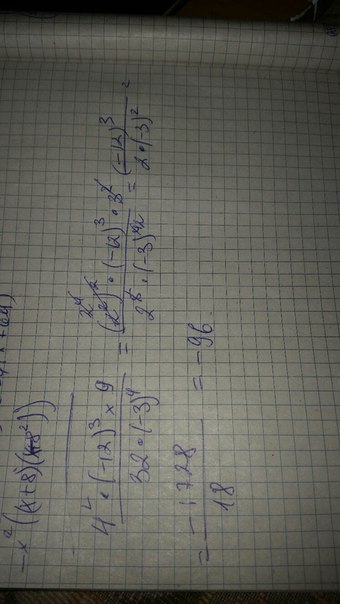 -x²((x+8)(x+8²))
4² · (-12)³ × 9 / 32 · (-3)⁴ = (2²)² · (-12)³ · 3² / 2⁵ · (-3)⁴ = (-12)³ / 2 · (-3)² =
= -1728 / 18 = -96.